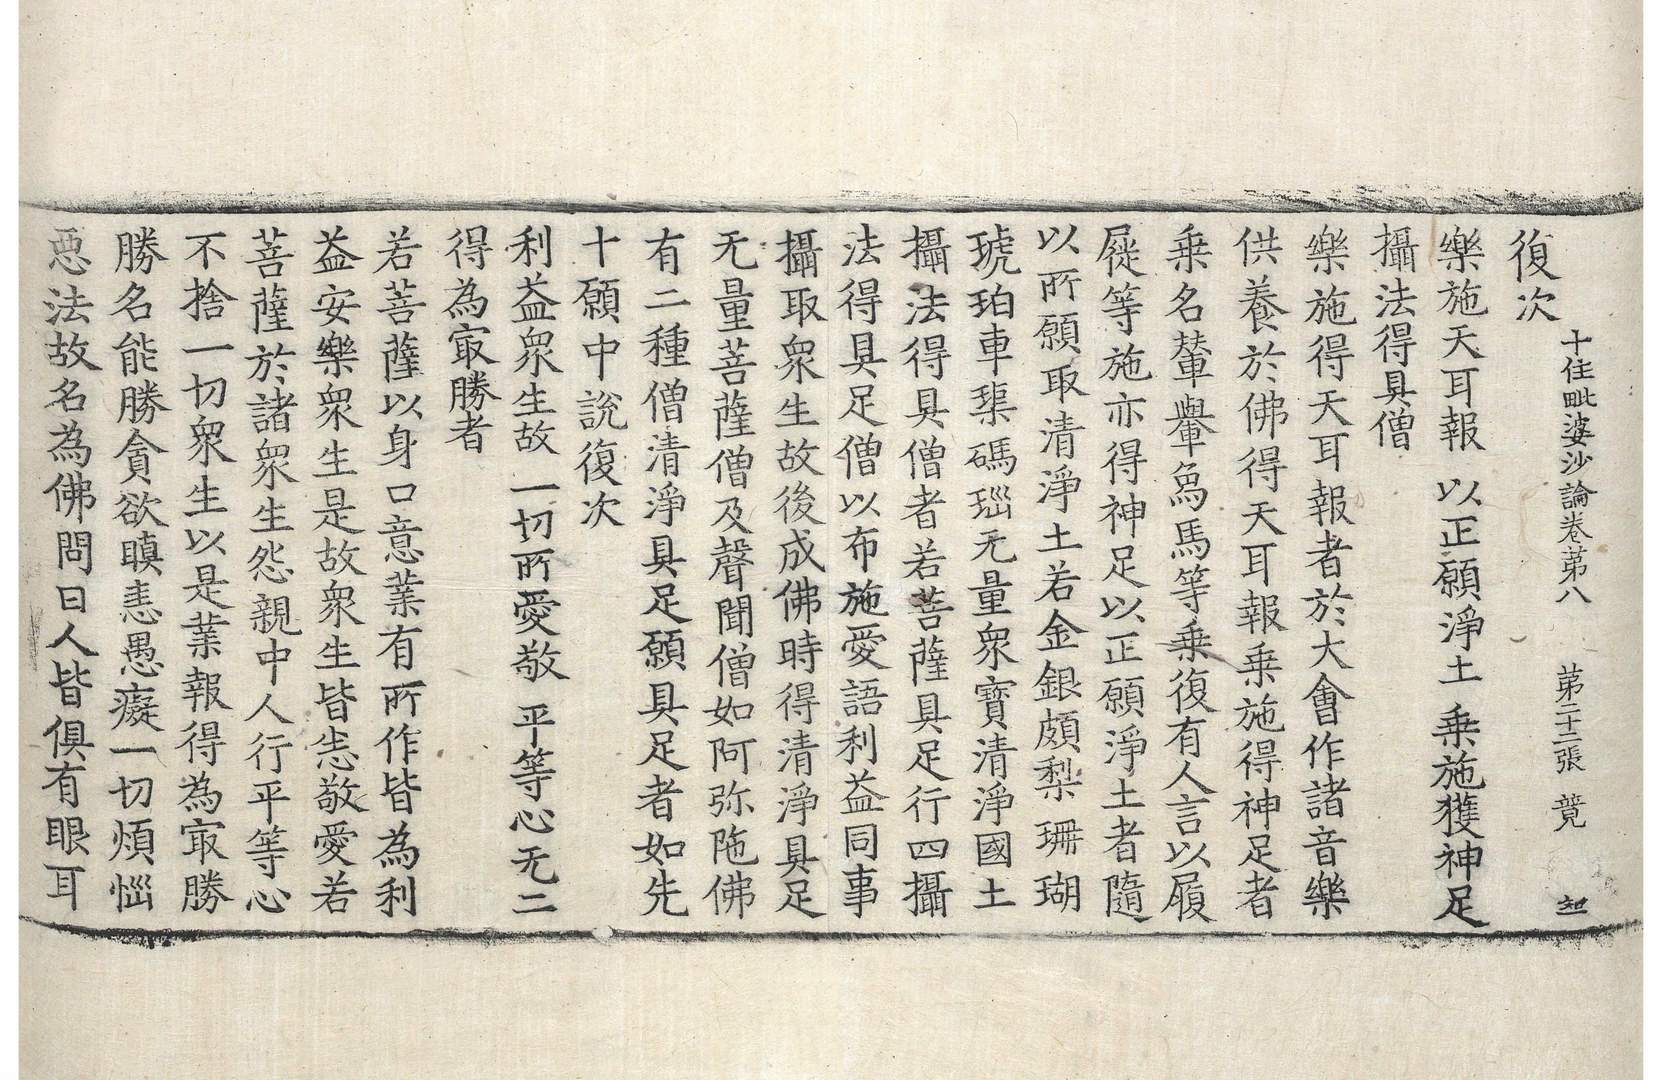 十住毗婆沙論卷苐八　苐二十二張　竟
復次
樂施天耳報　以正願淨土　乗施獲神足
攝法得具僧
樂施得天耳報者於大會作諸音樂
供養於佛得天耳報乗施得神足者
乗名輦轝象馬等乗復有人言以履
屣等施亦得神足以正願淨土者隨
以所願取清淨土若金銀頗梨珊瑚
琥珀車璖碼瑙无量衆寶清淨國土
攝法得具僧者若菩薩具足行四攝
法得具足僧以布施愛語利益同事
攝取衆生故後成佛時得清淨具足
无量菩薩僧及聲聞僧如阿弥陁佛
有二種僧清淨具足願具足者如先
十願中說復次
利益衆生故　一切所愛敬　平等心无二
得為㝡勝者
若菩薩以身口意業有所作皆為利
益安樂衆生是故衆生皆恙敬愛若
菩薩於諸衆生怨親中人行平等心
不捨一切衆生以是業報得為㝡勝
勝名能勝貪欲瞋恚愚癡一切煩惱
惡法故名為佛問曰人皆俱有眼耳